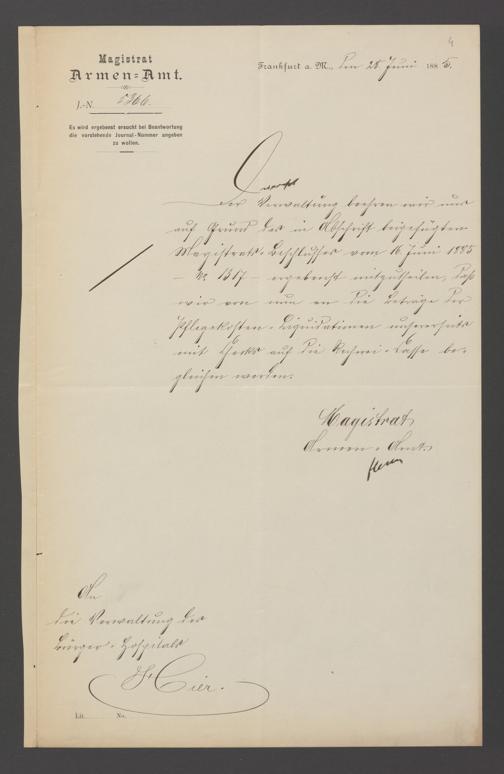 4
Magistrat
Armen=Amt.
Frankfurt a. M., den 28 Juni 1885.
J.-N. 5266.
Es wird ergebenst ersucht bei Beantwortung
die vorstehende Journal-Nummer angeben
zu wollen.
Der Verwaltung beehren wir uns
auf Grund des in Abschrift beigefügten
Magistrats-Beschlusses vom 16 Juni 1885
- No 1317 - ergebenst mitzutheilen, daß
wir von nun an die Beträge der
Pflegekosten-Liquidationen unsererseits
mit Checks auf die Rechnei-Casse be-
gleichen werden.
Magistrat
Armen-Amt.
An
die Verwaltung des
Bürger-Hospitals
Hier.
Lit. No.